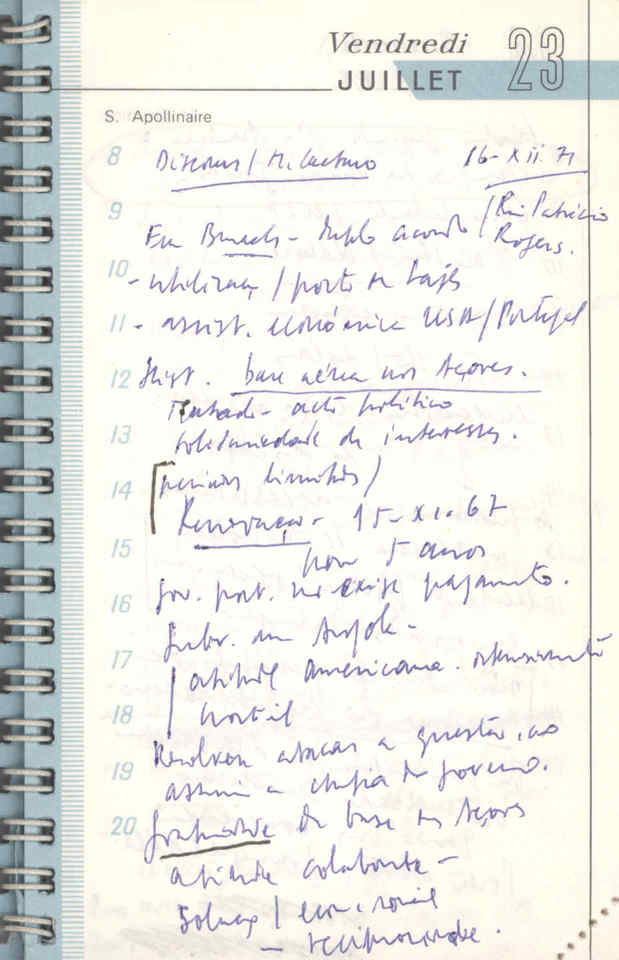 Vendredi 23
JUILLET
S. Apollinaire
8 Discours / M. Caetano 16-XII.71
9 / Rui Patrício
Em Bruxelas - duplo acordo Rogers.
10 - utilizaç / porto de Lajes
11 - assist. económica USA/Portugal
12 Hist. base aérea nos Açores.
Tratado - acto político
13 solidariedade de interesses.
14 períodos limitados /
Renovação - 15-XI.67
15 por 5 anos
16 Gov. port. não exige pagamento.
Subv. em Angola -
17 atitude americana. ostensivamente
18 hostil
Resolveu atacar a questão, ao
19 assumir a chefia do governo.
20 Gratuidade da base dos Açores
atitude colaborante -
Soluç / econ. e social
- reciprocidade.